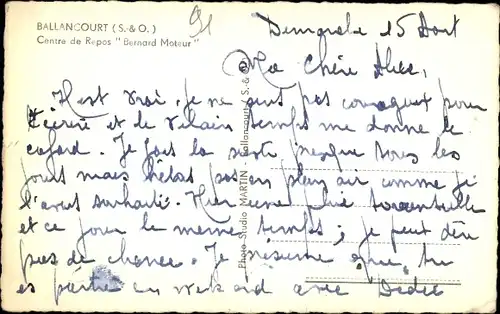 BALLANCOURT (S.-&O.)
Centre de Repos "Bernard Moteur"
91
Dimanche 15 Aout
Ma Chère Alice,
C'est vrai, je ne suis pas courageux pour
t'écrire et ce vilain temps me donne le
cafard. Je fais la sieste presque tous les
jours mais hélas pas en plein air comme je
l'avais souhaité. Hier une pluie torrentielle
et ce jour le même temps; je peux dire
pas de chance. Je présume que tu
es partie en wekend avec Dédée
Photo Studio MARTIN Ballancourt (S.-&-O.)